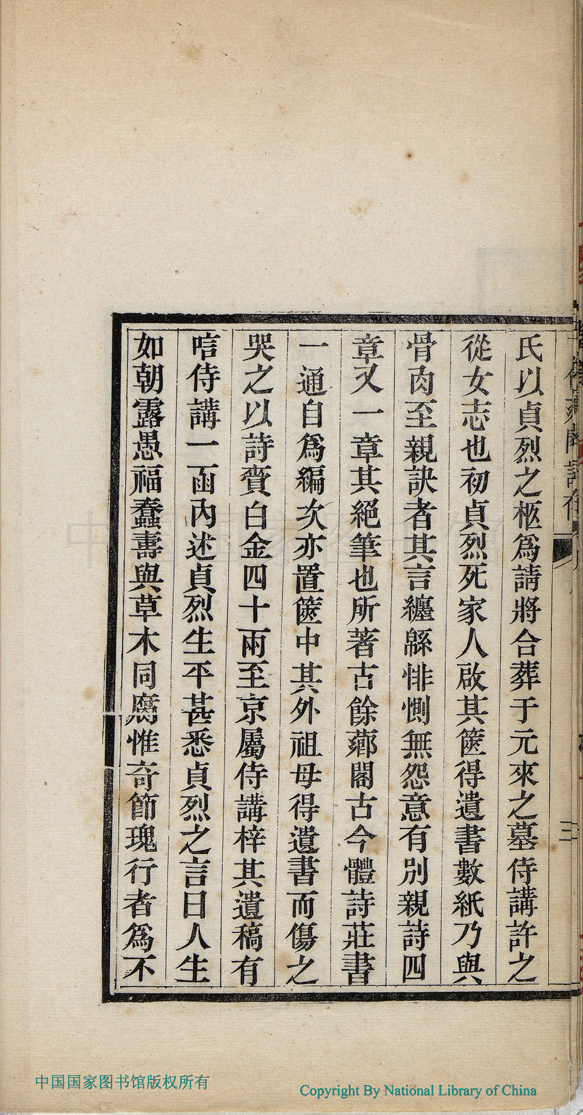 氏以貞烈之柩爲請將合葬于元來之墓侍講許之
從女志也初貞烈死家人啟其篋得遺書數紙乃與
骨肉至親訣者其言纏緜悱惻無怨意有別親詩四
章又一章其絕筆也所著古餘薌閣古今體詩莊書
一通自爲編次亦置篋中其外祖母得遺書而傷之
哭之以詩賫白金四十兩至京屬侍講梓其遺稿有
唁侍講一函內述貞烈生平甚悉貞烈之言曰人生
如朝露愚福蠢壽與草木同腐惟奇節瑰行者爲不
三
中国国家图书馆版权所有
Copyright By National Library of China